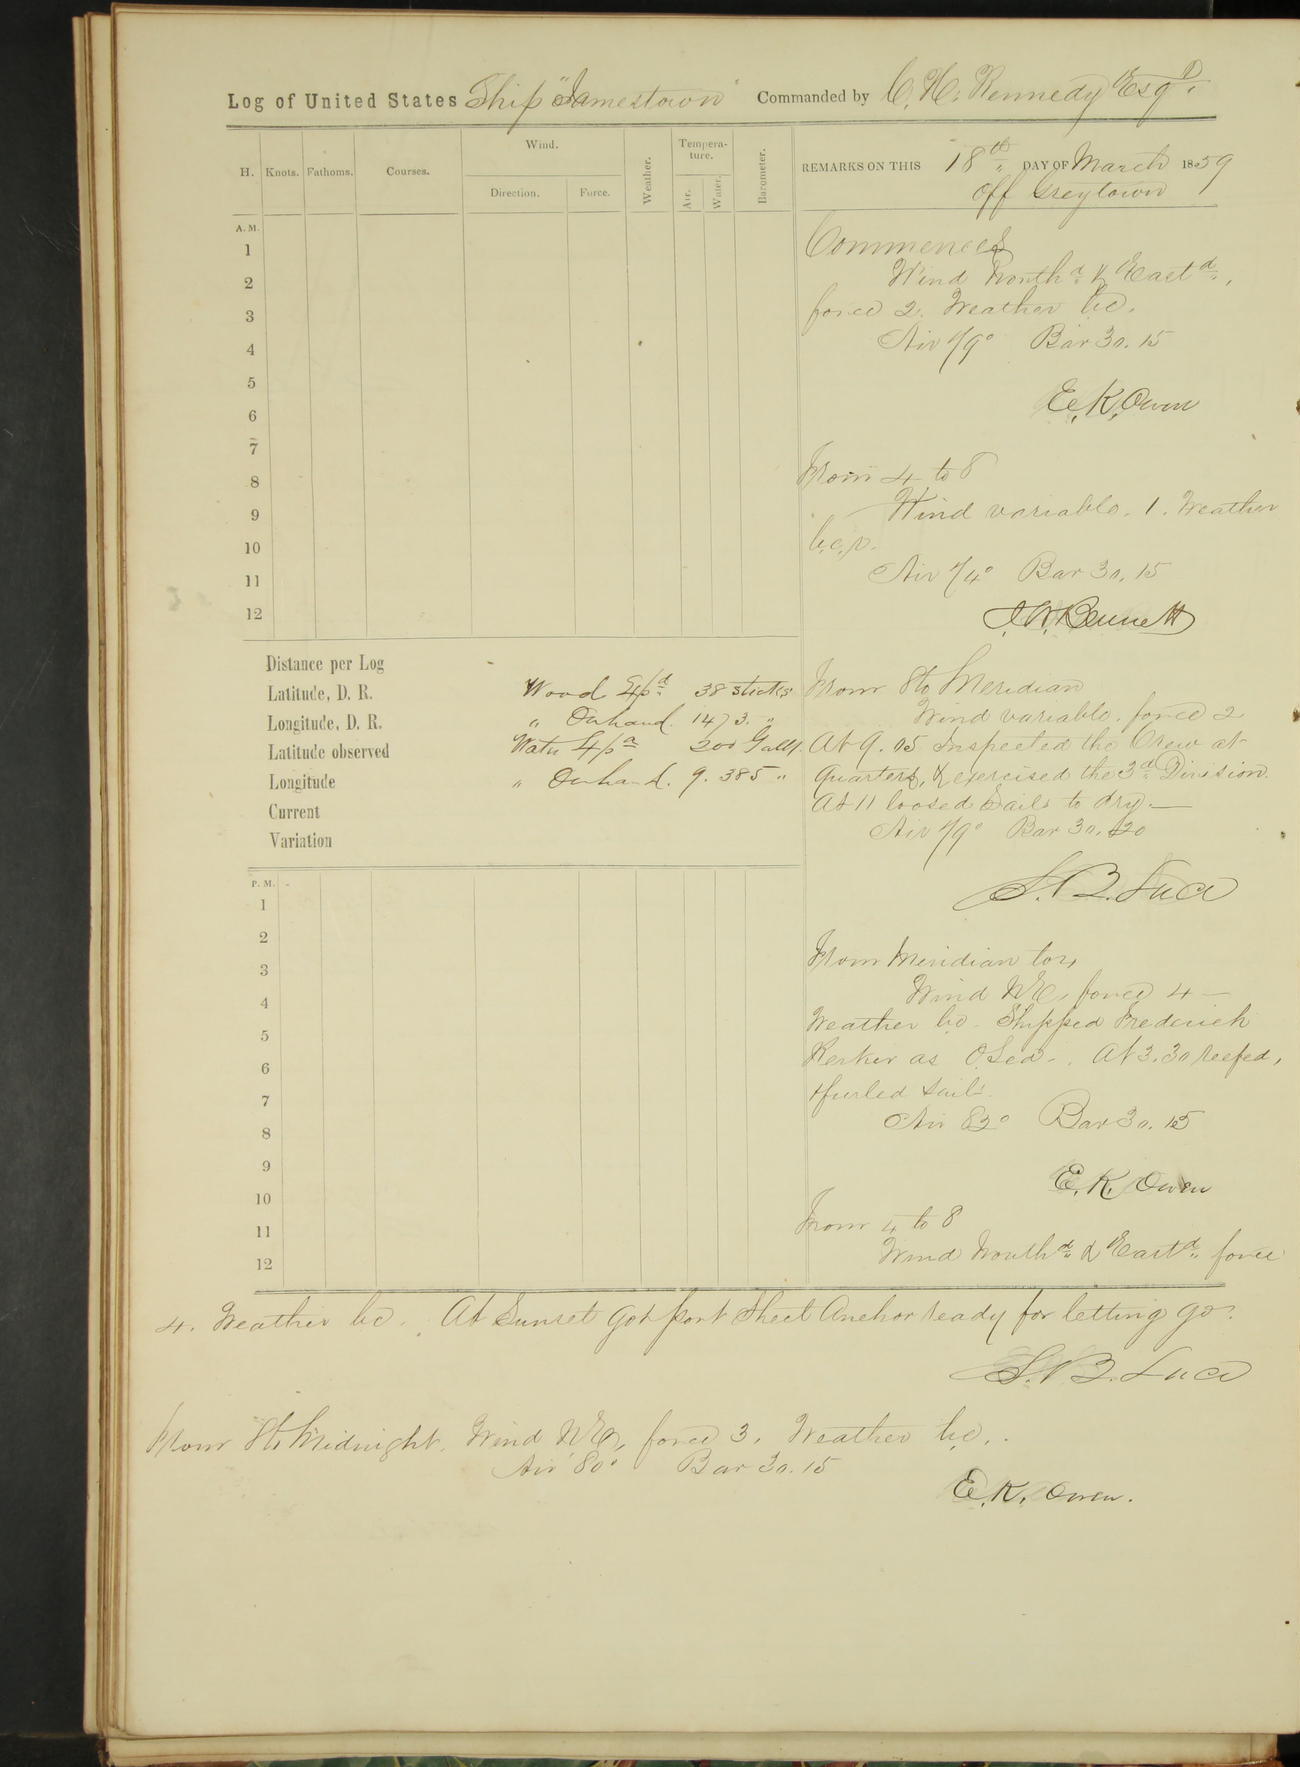 Log of United States Ship "Jamestown" Commanded by C. H. Kennedy Esqr.
H. Knots. Fathoms. Courses. Wind. Direction. Force. Weather. Tempera-ture. Air. Water. Barometer.
REMARKS ON THIS 18th DAY OF March 1859
off Greytown
A. M.
1
2
3
4
5
6
7
8
9
10
11
12
Commences
Wind North'd & East'd,
force 2. Weather bc.
Air 79° Bar 30.15
E. K. Owen
From 4 to 8
Wind variable. 1. Weather
b.c.p.
Air 74° Bar 30.15
J. W. Bennett
Distance per Log
Latitude, D. R.
Longitude, D. R.
Latitude observed
Longitude
Current
Variation
Wood Exp'd 38 sticks
" On hand. 1473. "
Water Exp'd 200 Galls.
" On hand. 9.385 "
From 8 to Meridian
Wind variable. force 2
At 9.05 Inspected the Crew at
Quarters, & exercised the 3d Division.
At 11 loosed Sails to dry. —
Air 79° Bar 30.20
S. B. Luce
P. M.
1
2
3
4
5
6
7
8
9
10
11
12
From Meridian to 4
Wind NE, force 4 —
Weather bc. Shipped Frederick
as O. Sea. . At 3.30 reefed,
& furled sails.
Air 82° Bar 30.15
E. K. Owen
From 4 to 8
Wind North'd & East'd. force
4. Weather bc. At Sunset Got port Sheet Anchor ready for letting go.
S. B. Luce
From 8 to Midnight. Wind NE, force 3. Weather bc.
Air 80° Bar 30.15
E. K. Owen.